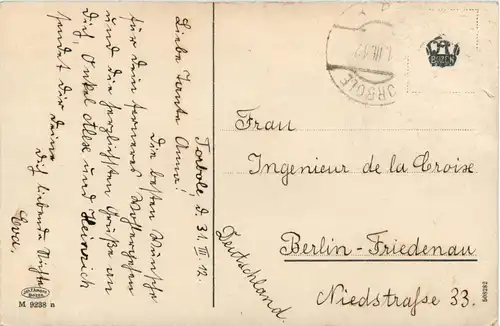 Torbole, d. 31. III. 12.
Liebe Tante Anna!
Die besten Wünsche
für dein ferneres Wohlergehen
und die herzlichsten Grüße an
dich, Onkel Alex und Heinrich
sendet dir deine
dich liebende Nichte
Eva.
M 9238 n
ORBOLE
III.12
BOZEN
Frau
Ingenieur de la Croix
Berlin-Friedenau
Niedstraße 33.
Deutschland.